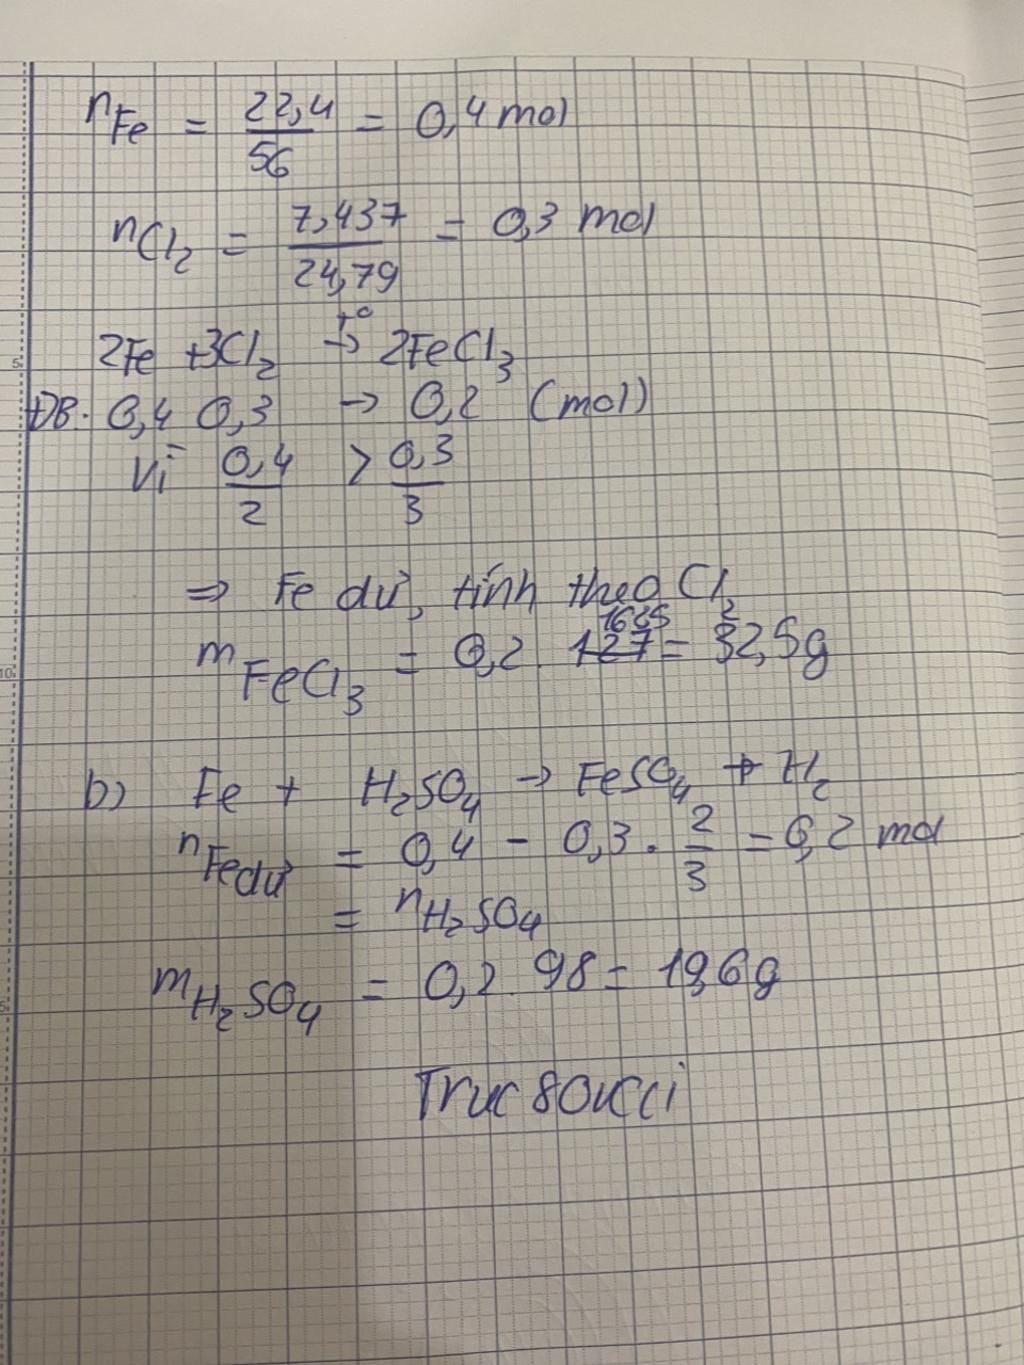 nFe = 22,4/56 = 0,4 mol
nCl2 = 7,437/24,79 = 0,3 mol
2Fe + 3Cl2 t° → 2FeCl3
ĐB: 0,4 0,3 → 0,2 (mol)
Vì 0,4/2 > 0,3/3
⇒ Fe dư, tính theo Cl2
162,5
mFeCl3 = 0,2 . 127 = 32,5g
b) Fe + H2SO4 → FeSO4 + H2
nFe dư = 0,4 - 0,3 . 2/3 = 0,2 mol
= nH2SO4
mH2SO4 = 0,2 . 98 = 19,6g
5
10